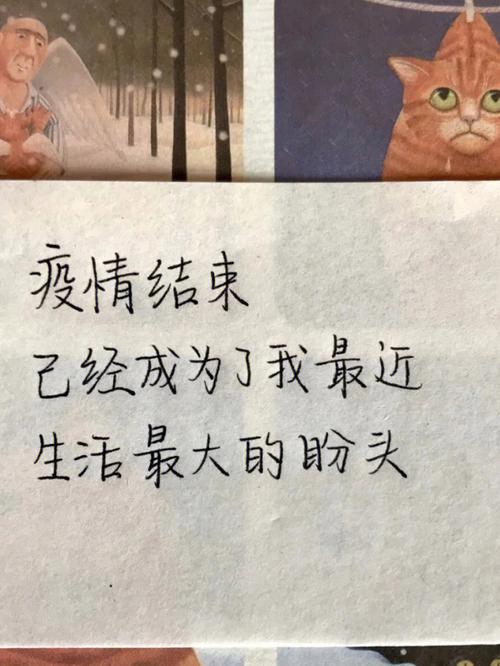 疫情结束
已经成为了我最近
生活最大的盼头